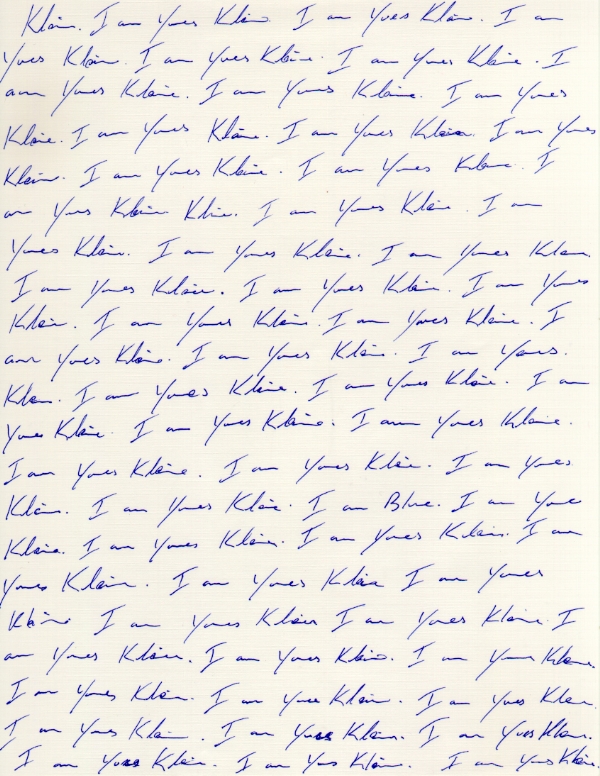 Klein. I am Yves Klein I am Yves Klein. I am
Yves Klein. I am Yves Klein. I am Yves Klein. I
am Yves Klein. I am Yves Klein. I am Yves
Klein. I am Yves Klein. I am Yves Klein. I am Yves
Klein. I am Yves Klein. I am Yves Klein. I
am Yves Klein Klein. I am Yves Klein. I am
Yves Klein. I am Yves Klein. I am Yves Klein
I am Yves Klein. I am Yves Klein. I am Yves
Klein. I am Yves Klein. I am Yves Klein. I
am Yves Klein. I am Yves Klein. I am Yves.
Klein. I am Yves Klein. I am Yves Klein. I am
Yves Klein. I am Yves Klein. I am Yves Klein.
I am Yves Klein. I am Yves Klein. I am Yves
Klein. I am Yves Klein. I am Blue. I am Yves
Klein. I am Yves Klein. I am Yves Klein. I am
Yves Klein. I am Yves Klein I am Yves
Klein I am Yves Klein I am Yves Klein. I
am Yves Klein. I am Yves Klein. I am Yves Klein.
I am Yves Klein. I am Yves Klein. I am Yves Klein.
I am Yves Klein. I am Yves Klein. I am Yves Klein.
I am Yves Klein. I am Yves Klein. I am Yves Klein.